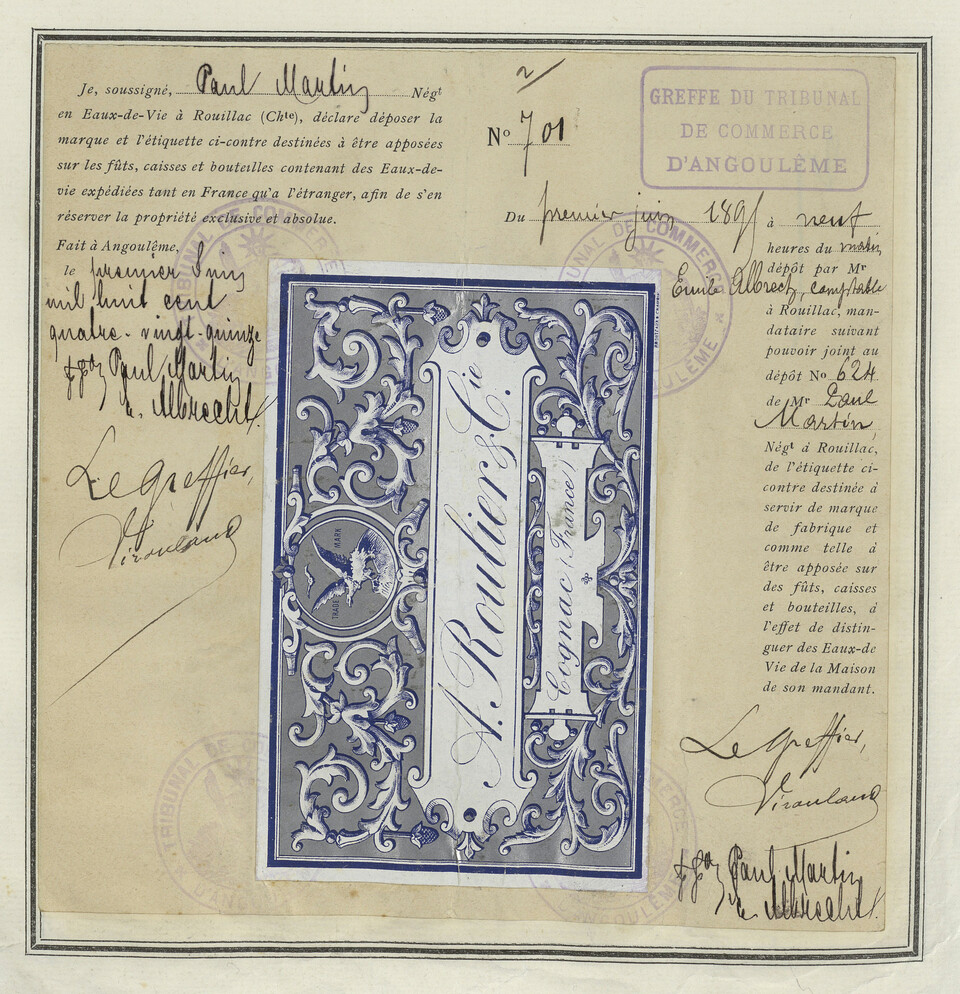 Je, soussigné, Paul Martin Négt
en Eaux-de-Vie à Rouillac (Chte), déclare déposer la
marque et l'étiquette ci-contre destinées à être apposées
sur les fûts, caisses et bouteilles contenant des Eaux-de-
vie expédiées tant en France qu'a l'étranger, afin de s'en
réserver la propriété exclusive et absolue.
Fait à Angoulême,
le premier Juin
mil huit cent
quatre-vingt-quinze
Paul Martin
Albrecht
Le Greffier,
2/
No 701
GREFFE DU TRIBUNAL
DE COMMERCE
D'ANGOULÊME
Du premier juin 1895 à neuf
heures du matin
dépôt par Mr
Emile Albrecht, comptable
à Rouillac, man-
dataire suivant
pouvoir joint au
dépôt No 624
de Mr Paul
Martin,
Négt à Rouillac,
de l'étiquette ci-
contre destinée à
servir de marque
de fabrique et
comme telle à
être apposée sur
des fûts, caisses
et bouteilles, à
l'effet de distin-
guer des Eaux-de
Vie de la Maison
de son mandant.
Le Greffier,
Paul Martin
Albrecht
TRADE MARK
A. Roulier & Cie
Cognac (France)
TRIBUNAL DE COMMERCE
ANGOULÊME